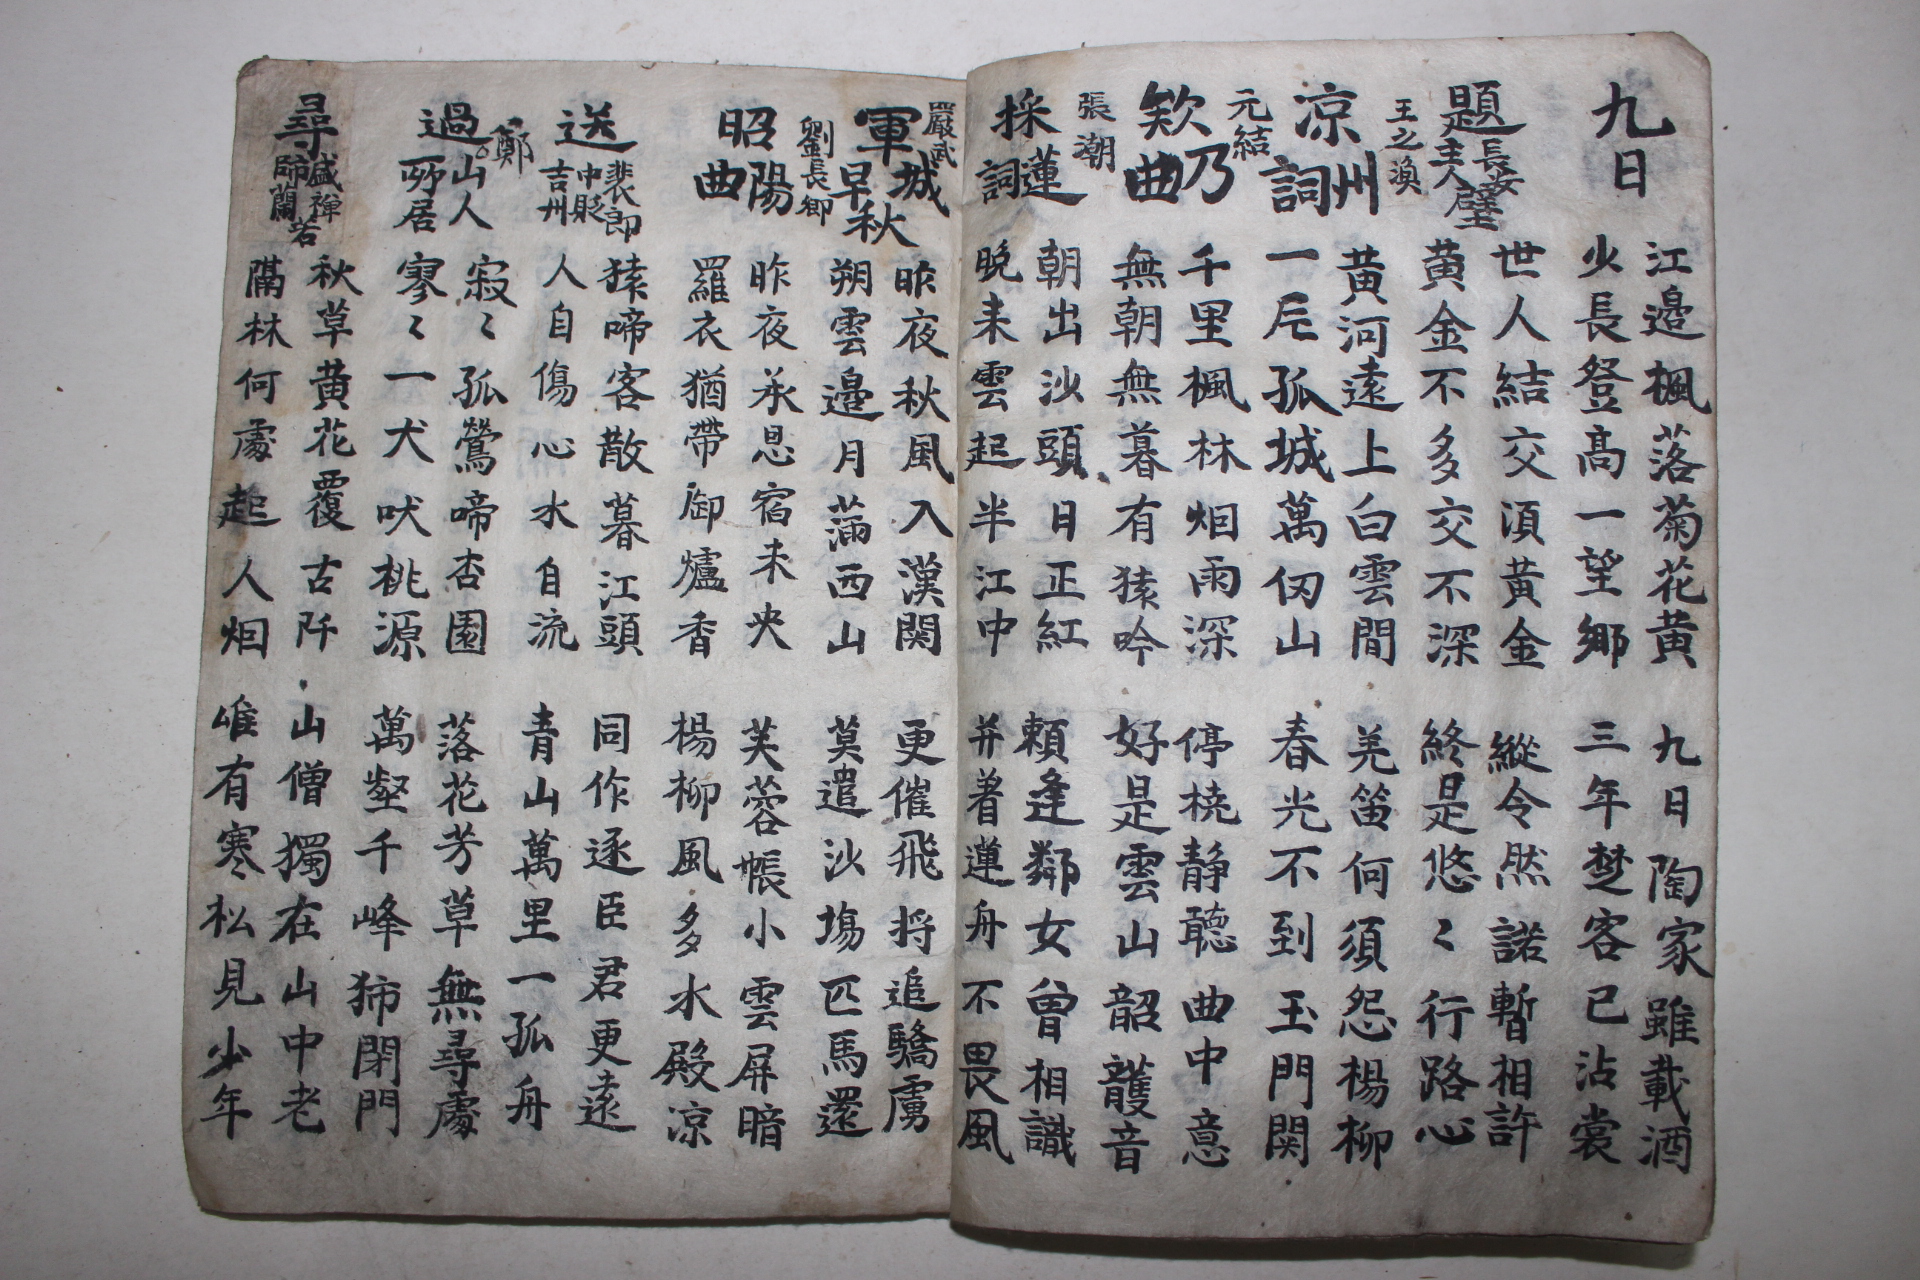 九日
江邉楓落菊花黃
少長登高一望鄉
九日陶家雖載酒
三年楚客已沾裳
題長安主人壁
世人結交須黃金
黃金不多交不深
縱令然諾暫相許
終是悠〻行路心
王之渙
凉州詞
黃河遠上白雲間
一片孤城萬仞山
羌笛何須怨楊柳
春光不到玉門関
元結
欸乃曲
千里楓林烟雨深
無朝無暮有猿吟
停橈静聽曲中意
好是雲山韶頀音
張潮
採蓮詞
朝出沙頭日正紅
晩来雲起半江中
頼逢鄰女曾相識
并着蓮舟不畏風
嚴武
軍城早秋
昨夜秋風入漢関
朔雲邉月滿西山
更催飛将追驕虜
莫遣沙塲匹馬還
劉長卿
昭陽曲
昨夜承恩宿未央
羅衣猶帶御爐香
芙蓉帳小雲屏暗
楊柳風多水殿凉
送裴郎中貶吉州
猿啼客散暮江頭
人自傷心水自流
同作逐臣君更遠
青山萬里一孤舟
過鄭山人所居
寂〻孤鶯啼杏園
寥〻一犬吠桃源
落花芳草無尋處
萬壑千峰獨閉門
尋盛禪師蘭若
秋草黃花覆古阡
隔林何處起人烟
山僧獨在山中老
唯有寒松見少年